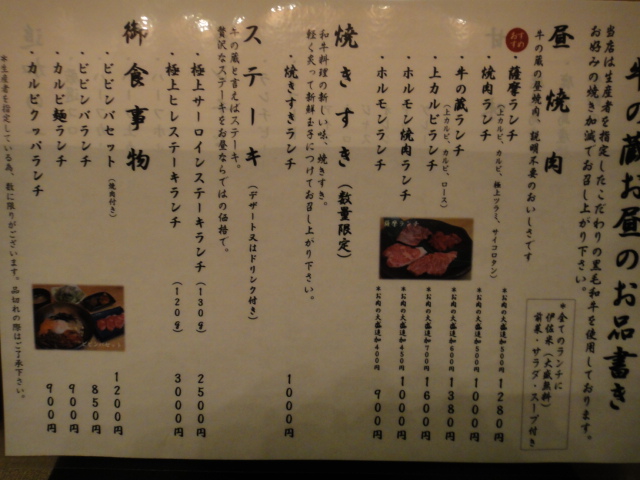 牛の蔵お昼のお品書き
当店は生産者を指定したこだわりの黒毛和牛を使用しております。
お好みの焼き加減でお召し上がり下さい。
*全てのランチに
伊佐米(大盛無料)
前菜・サラダ・スープ付き
昼焼肉
牛の蔵の昼焼肉、説明不要のおいしさです
おすすめ
・薩摩ランチ *お肉の大盛追加500円 1280円
(上カルビ、カルビ、極上ツラミ、サイコロテン)
・焼肉ランチ *お肉の大盛追加500円 1000円
・牛の蔵ランチ *お肉の大盛追加600円 1380円
(上カルビ、カルビ、ロース)
・上カルビランチ *お肉の大盛追加700円 1600円
・ホルモン焼肉ランチ *お肉の大盛追加450円 1000円
・ホルモンランチ *お肉の大盛追加400円 900円
焼きすき(数量限定)
和牛料理の新しい味、焼きすき。
軽く炙って新鮮玉子につけてお召し上がり下さい。
・焼きすきランチ 1000円
ステーキ(デザート又はドリンク付き)
牛の蔵と言えばステーキ。
贅沢なステーキをお昼ならではの価格で。
・極上サーロインステーキランチ(130g) 2500円
・極上ヒレステーキランチ(120g) 3000円
御食事物
・ビビンバセット(焼肉付き) 1200円
・ビビンバランチ 850円
・カルビ麺ランチ 900円
・カルビクッパランチ 900円
*生産者を指定している為、数に限りがございます。品切れの際はご了承下さい。